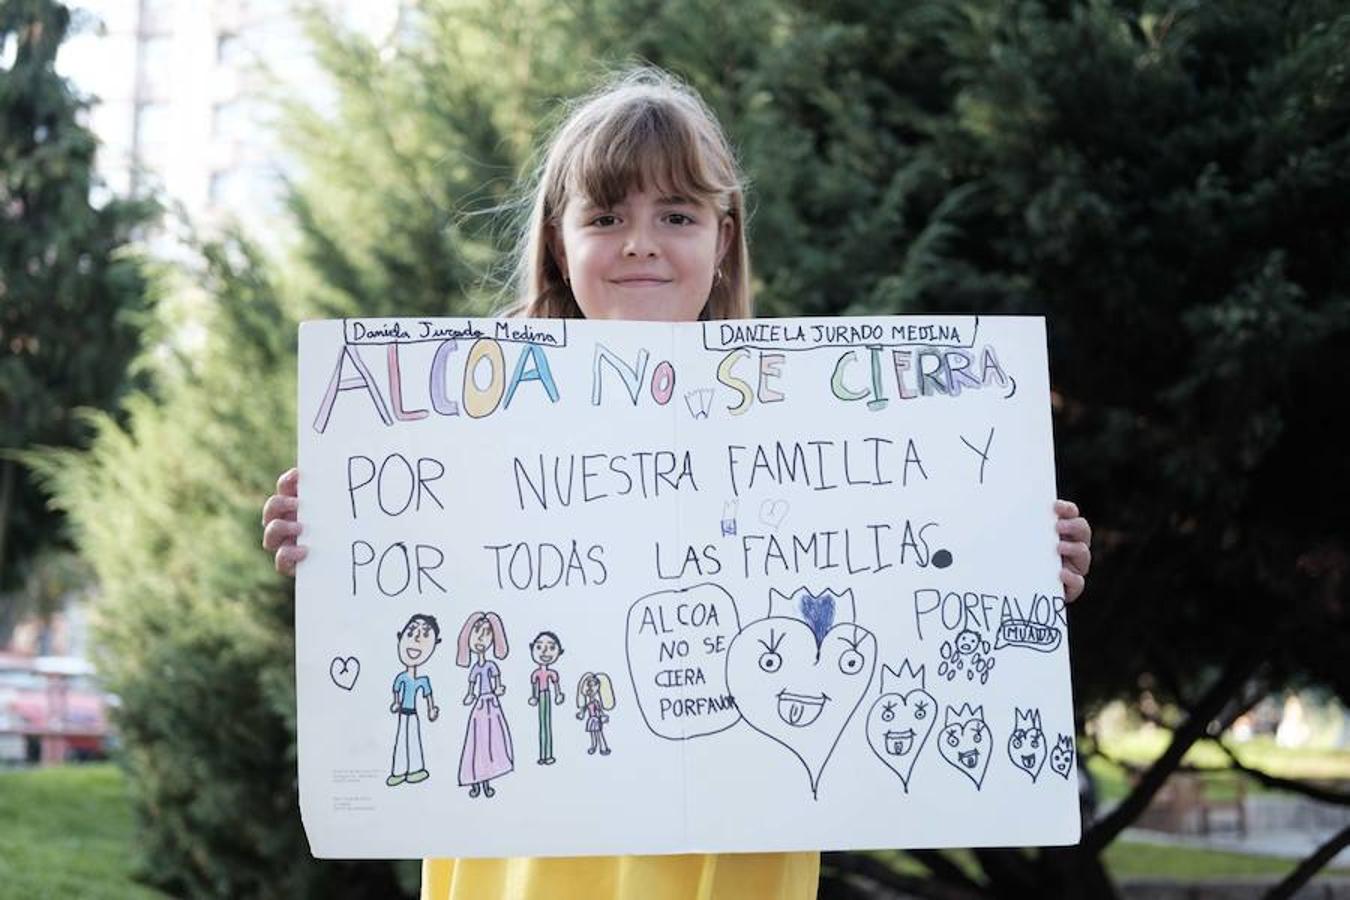 Daniela Jurado Medina
DANIELA JURADO MEDINA
ALCOA NO SE CIERRA,
POR NUESTRA FAMILIA Y
POR TODAS LAS FAMILIAS.
ALCOA
NO SE
CIERA
PORFAVOR
PORFAVOR